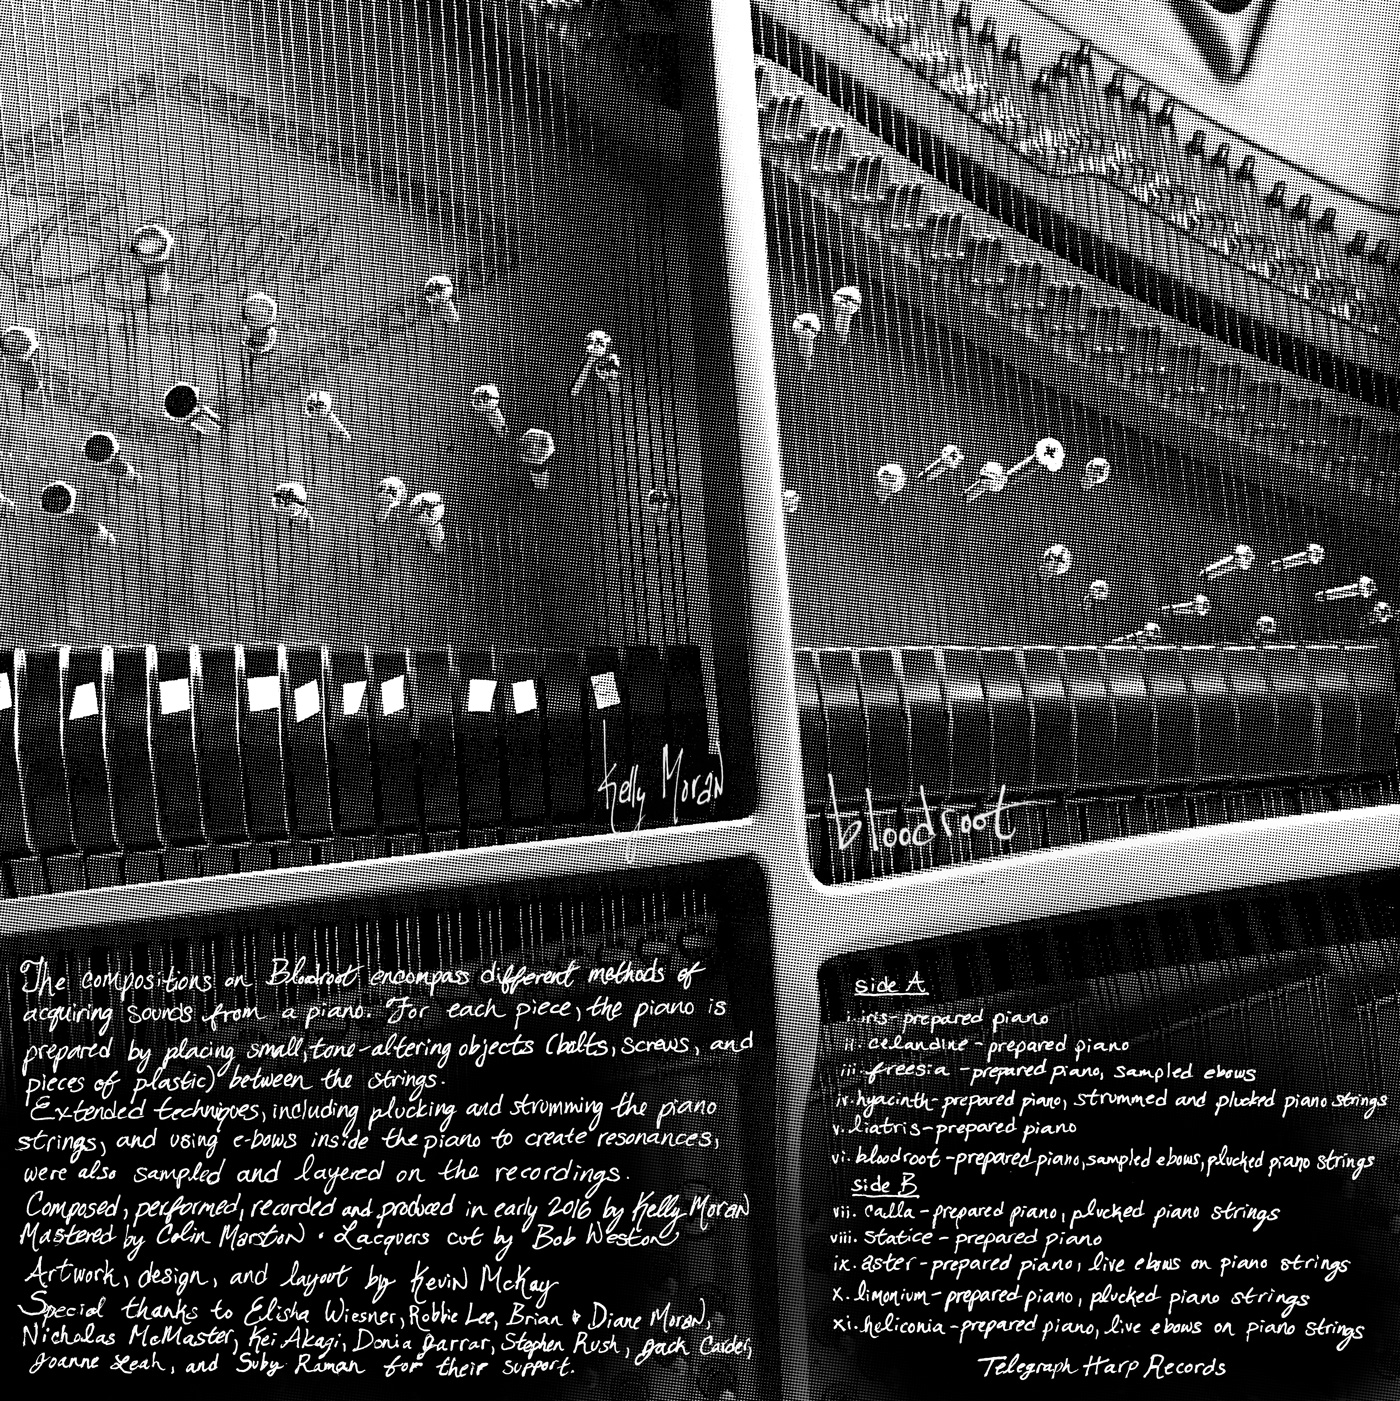 Kelly Moran
bloodroot
The compositions on Bloodroot encompass different methods of
acquiring sounds from a piano. For each piece, the piano is
prepared by placing small, tone-altering objects (bolts, screws, and
pieces of plastic) between the strings.
Extended techniques, including plucking and strumming the piano
strings, and using e-bows inside the piano to create resonances,
were also sampled and layered on the recordings.
Composed, performed, recorded and produced in early 2016 by Kelly Moran
Mastered by Colin Marston • Lacquers cut by Bob Weston
Artwork, design, and layout by Kevin McKay
Special thanks to Elisha Wiesner, Robbie Lee, Brian & Diane Moran,
Nicholas McMaster, Kei Akagi, Donia Jarrar, Stephen Rush, Jack Carder,
Joanne Leah, and Suby Raman for their support.
side A
i. iris - prepared piano
ii. celandine - prepared piano
iii. freesia - prepared piano, sampled ebows
iv. hyacinth - prepared piano, strummed and plucked piano strings
v. liatris - prepared piano
vi. bloodroot - prepared piano, sampled ebows, plucked piano strings
side B
vii. calla - prepared piano, plucked piano strings
viii. statice - prepared piano
ix. aster - prepared piano, live ebows on piano strings
x. limonium - prepared piano, plucked piano strings
xi. heliconia - prepared piano, live ebows on piano strings
Telegraph Harp Records